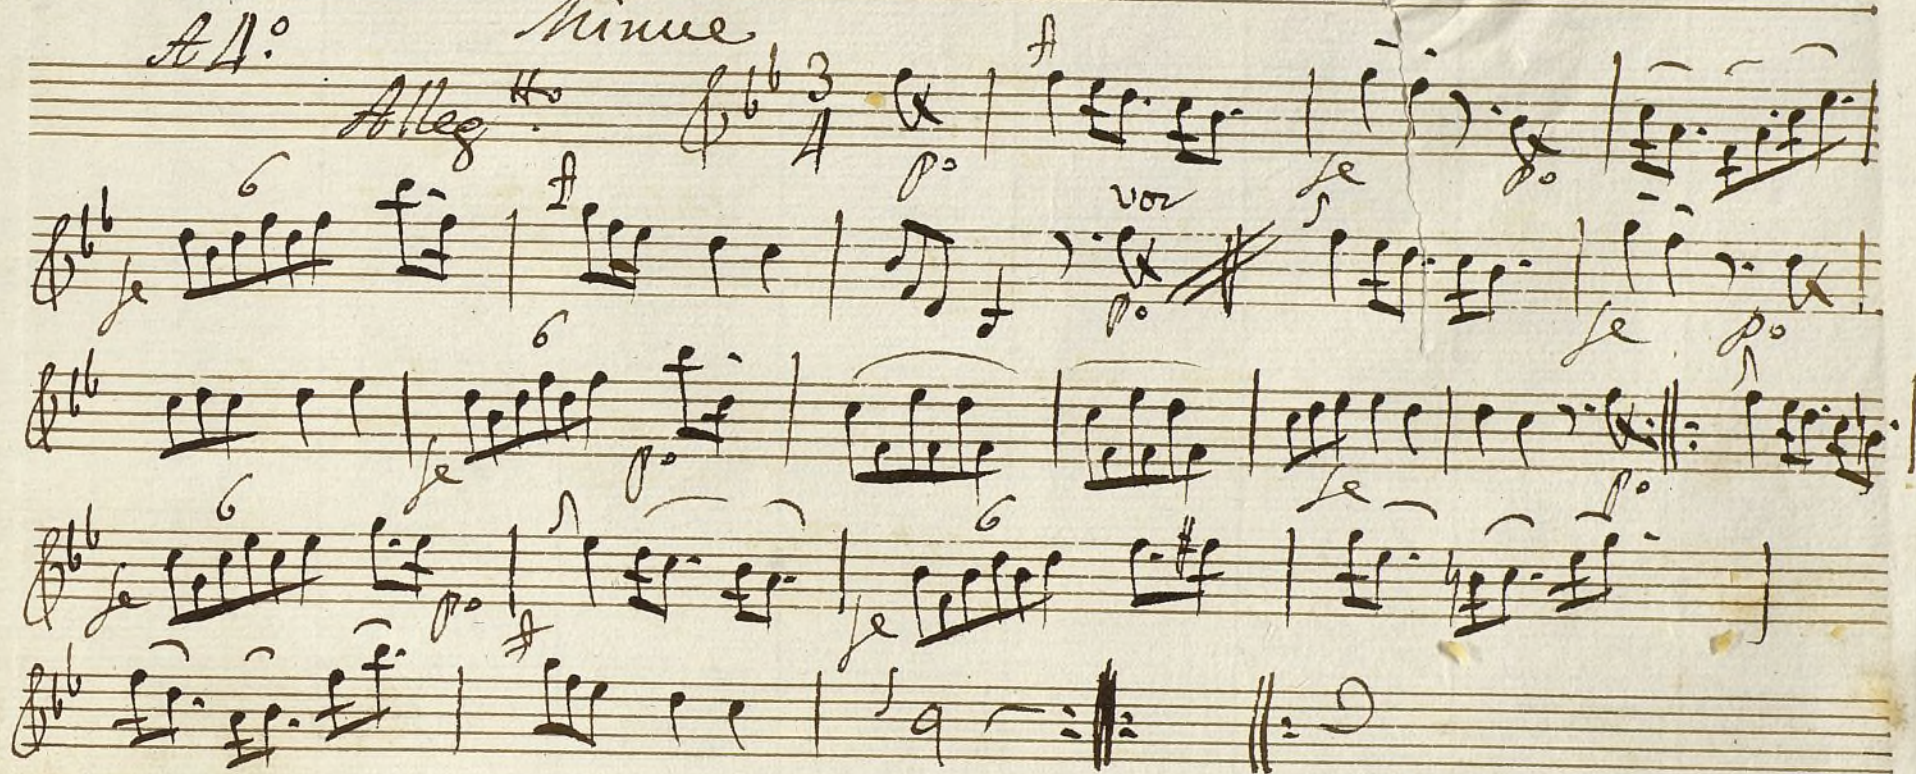 A 4.º Minue
Allegtto. 3 4
po fe po
6 vor
fe po fe po
6
fe po fe po
6 6
fe po fe